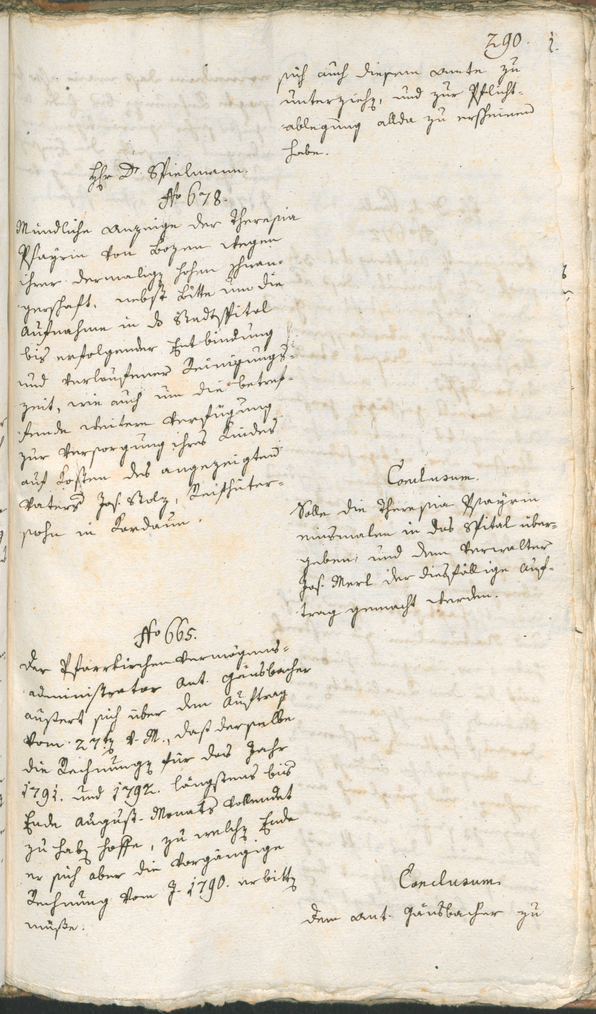 290.
sich auch diesem Amte zu
unterziehen, und zur Pflicht-
ablegung allda zu erscheinen
habe.
Hr. Dr. Spielmann.
No 678.
Mündliche Anzeige der Theresia
Psayrin von Bozen wegen
ihrer dermaligen hohen Schwan-
gerschaft, nebst Bitte um die
Aufnahme in das Stadtspital
bis erfolgender Entbindung
und verlaufener Reinigungs-
zeit, wie auch um die betref-
fende weitere Verfügung
zur Versorgung ihres Kindes
auf Kosten des angezeigten
Vaters Jos. Stolz,
sohn in Kardaun.
Conclusum.
Solle die Theresia Psayrin
einsmalen in das Spital über-
geben, und dem Verwalter
Jos. Merl der diesfällige Auf-
trag gemacht werden.
No 665.
Der Pfarrkirchenvermögens-
administrator Ant. Gänsbacher
äussert sich über den Auftrag
vom 27ten v. M., daß derselbe
die Rechnungen für das Jahr
1791. und 1792. längstens bis
Ende August-Monats vollendet
zu haben hoffe, zu welchem Ende
er sich aber die vorgängige
Rechnung vom J. 1790. erbitten
müße.
Conclusum.
Dem Ant. Gänsbacher zu